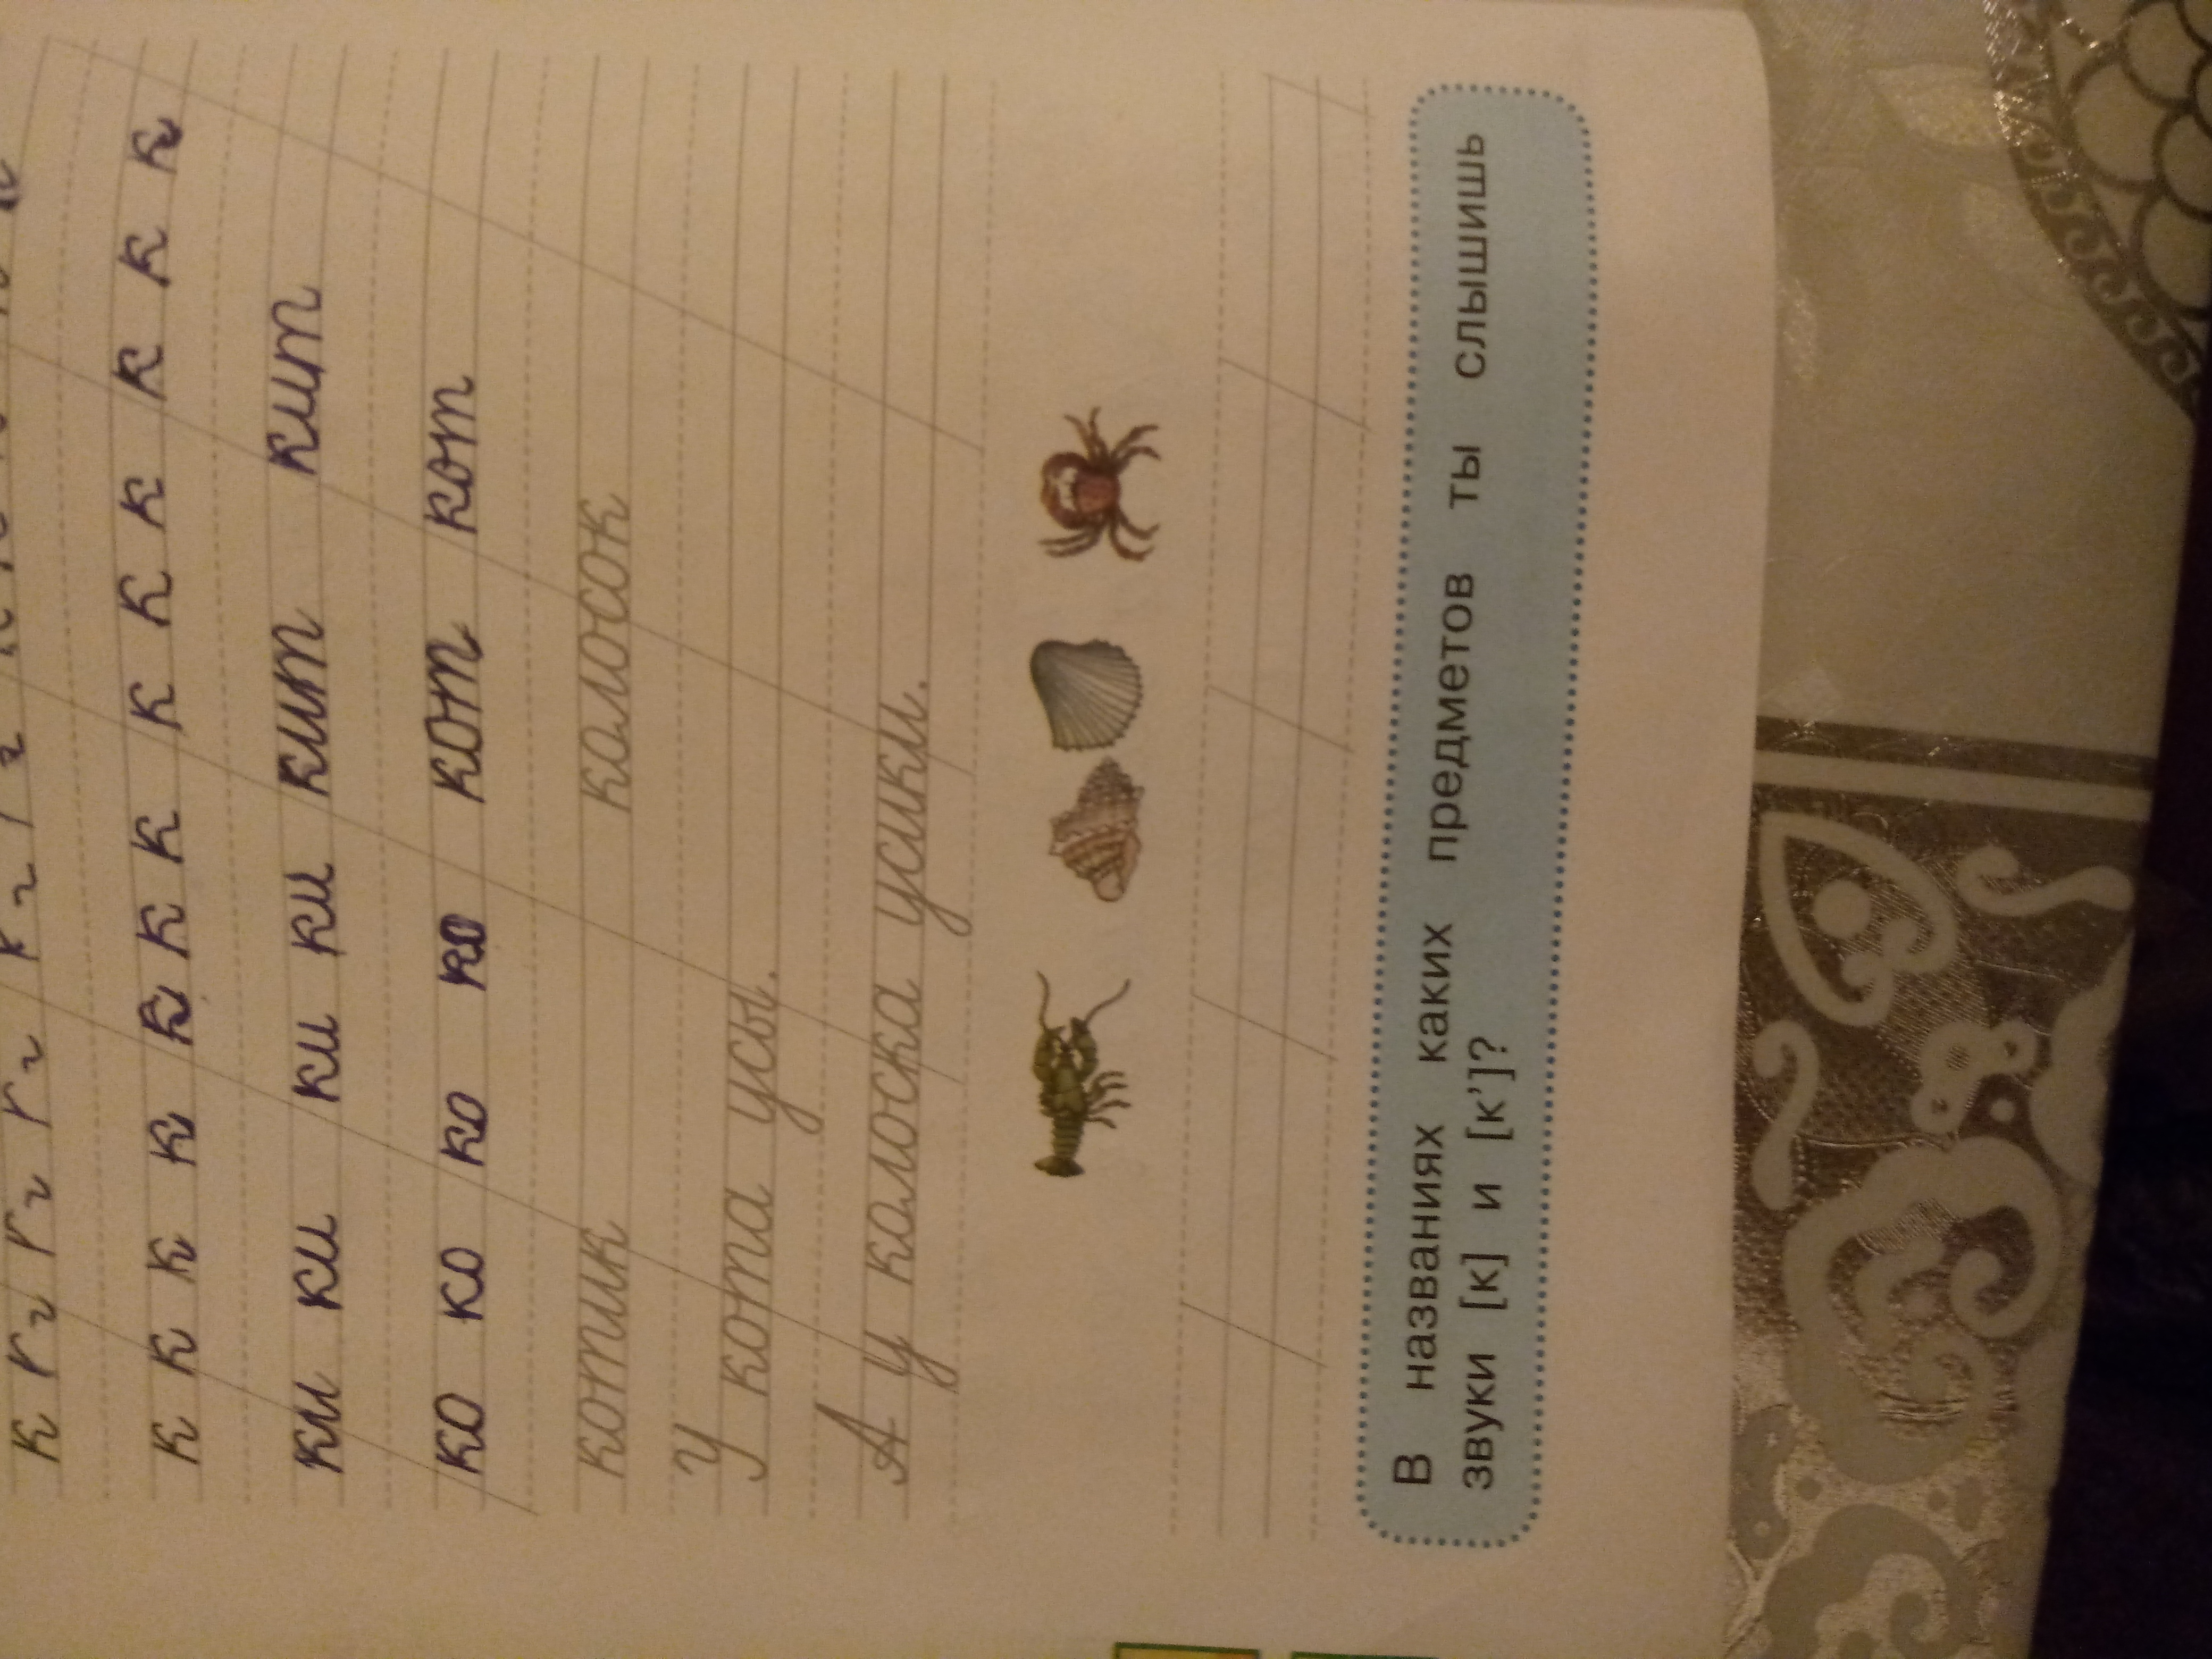 к г г г г г г
к к к к к к к к к к к к к
ки ки ки ки кит кит
ко ко ко ко кот кот
котик колосок
У кота усы.
А у колоска усики.
В названиях каких предметов ты слышишь
звуки [к] и [к’]?